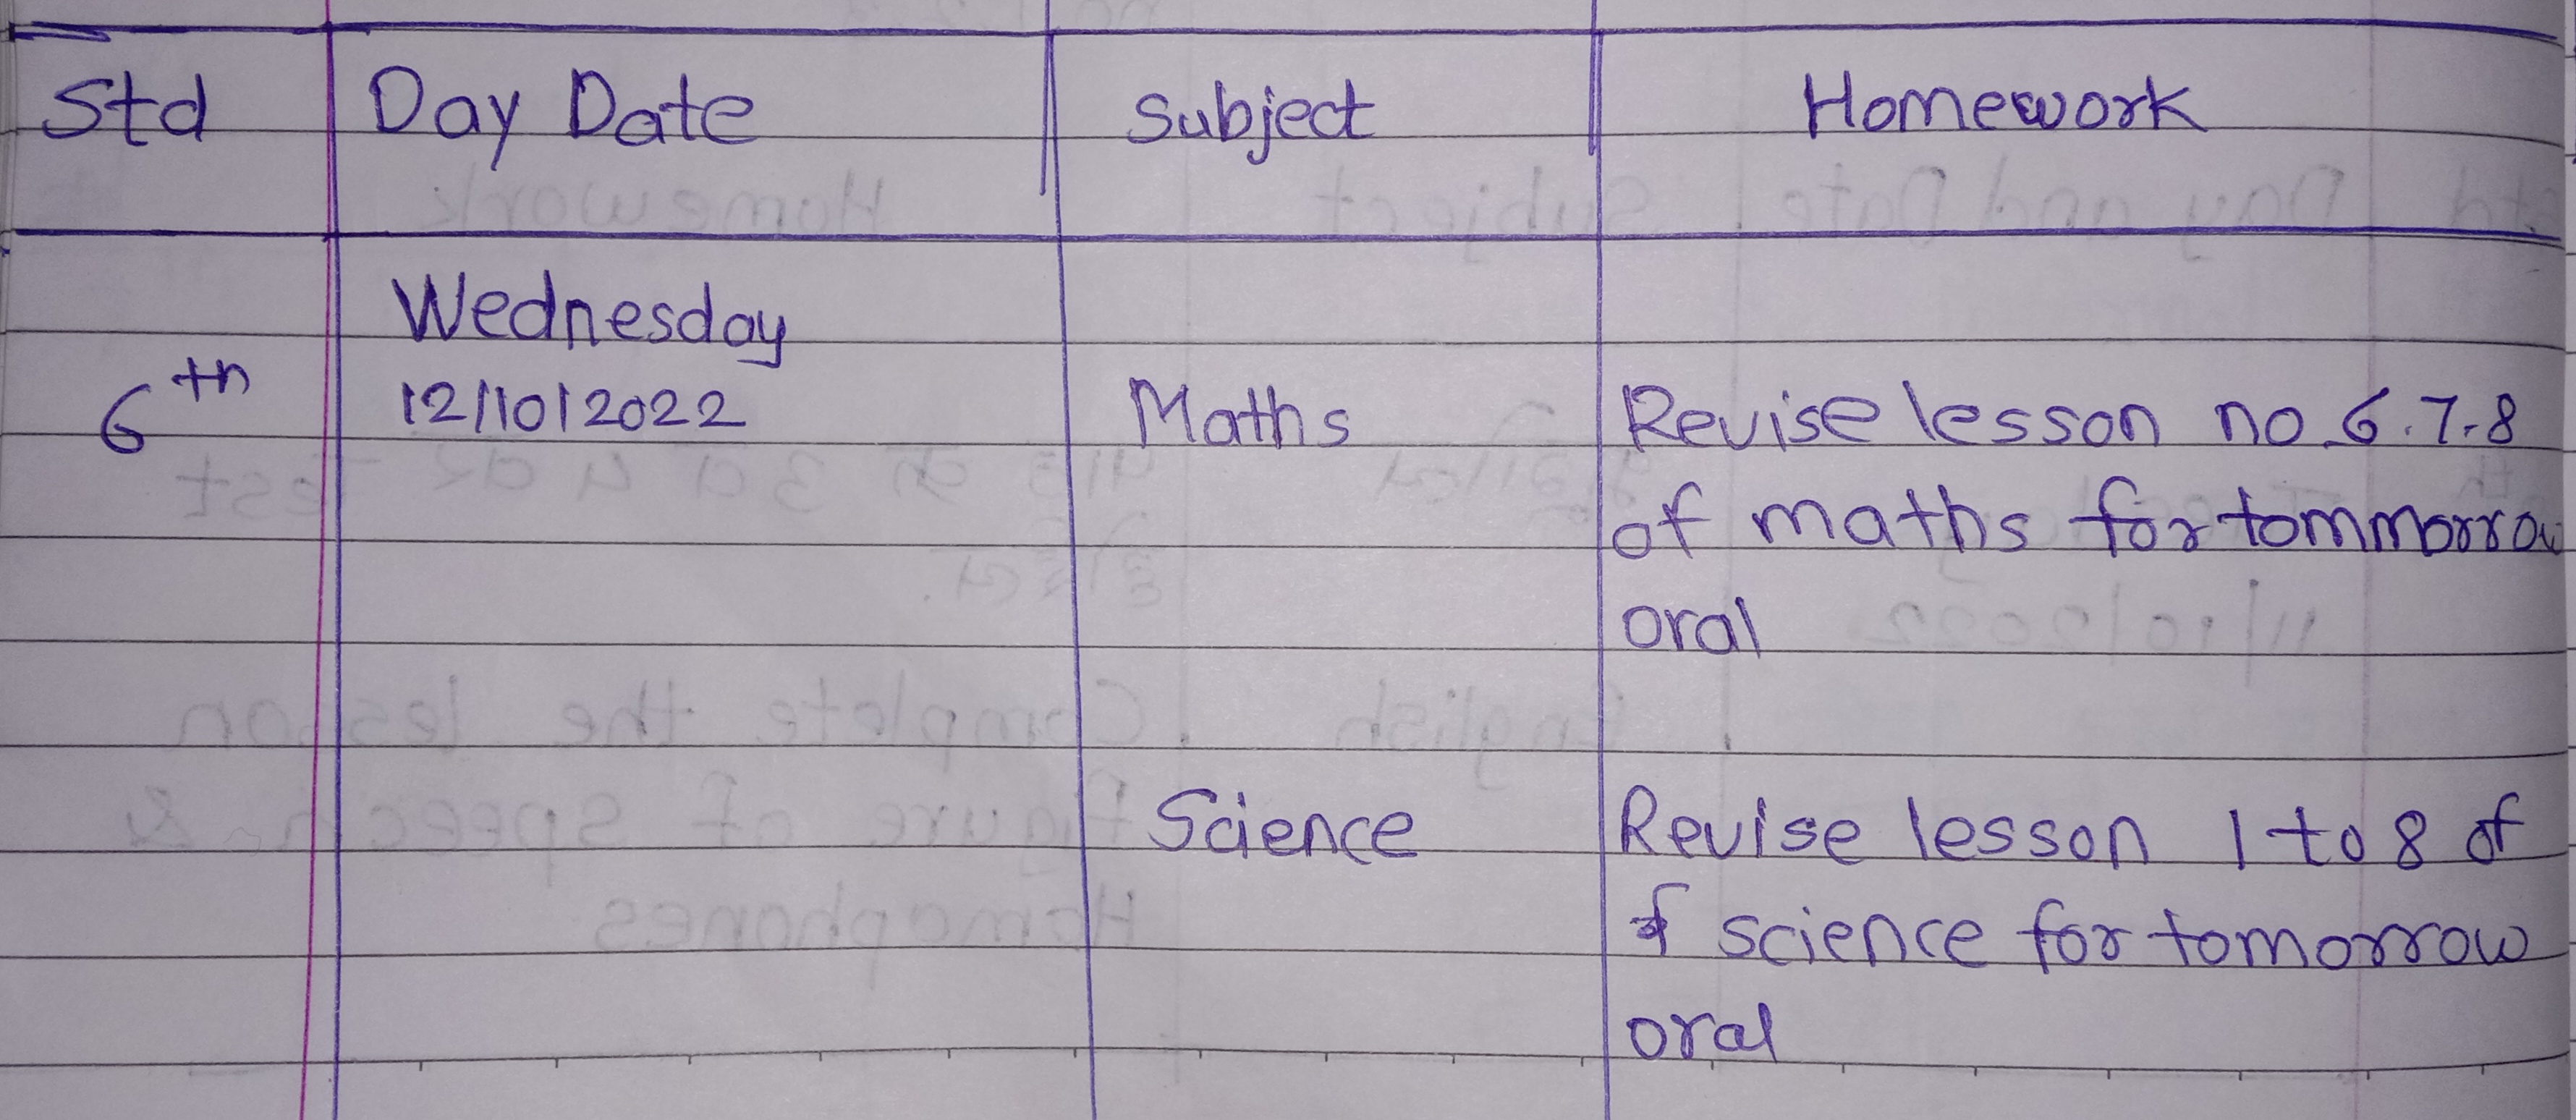 Std Day Date Subject Homework
Wednesday
6th 12/10/2022 Maths Revise lesson no 6.7.8
of maths for tommorrow
oral
Science Revise lesson 1 to 8 of
of science for tomorrow
oral